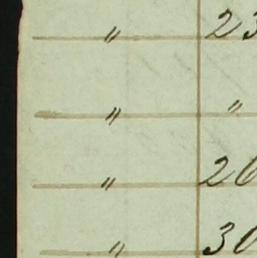 " 23
" "
" 26
" 30